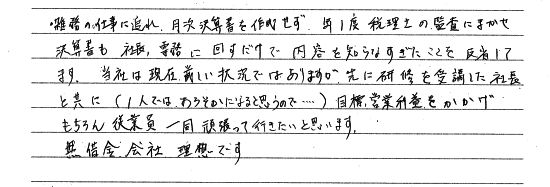 ・雑務の仕事に追れ、月次決算書を作成せず、年1度税理士の監査にまかせ
決算書も社長、専務に回すだけで内容を知らなすぎたことを反省して
ます。当社は現在厳しい状況ではありますが先に研修を受講した社長
と共に(1人ではおろそかになると思うので……)目標、営業利益をかかげ
もちろん従業員一同頑張って行きたいと思います。
無借金会社理想です